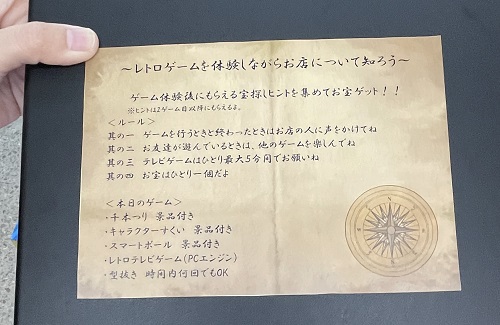 ～レトロゲームを体験しながらお店について知ろう～
ゲーム体験後にもらえる宝探しヒントを集めてお宝ゲット！！
※ヒントは2ゲーム目以降にもらえるよ。
＜ルール＞
其の一 ゲームを行うときと終わったときはお店の人に声をかけてね
其の二 お友達が遊んでいるときは、他のゲームを楽しんでね
其の三 テレビゲームはひとり最大5分間でお願いね
其の四 お宝はひとり一個だよ
＜本日のゲーム＞
・千本つり 景品付き
・キャラクターすくい 景品付き
・スマートボール 景品付き
・レトロテレビゲーム(PCエンジン)
・型抜き 時間内何回でもOK